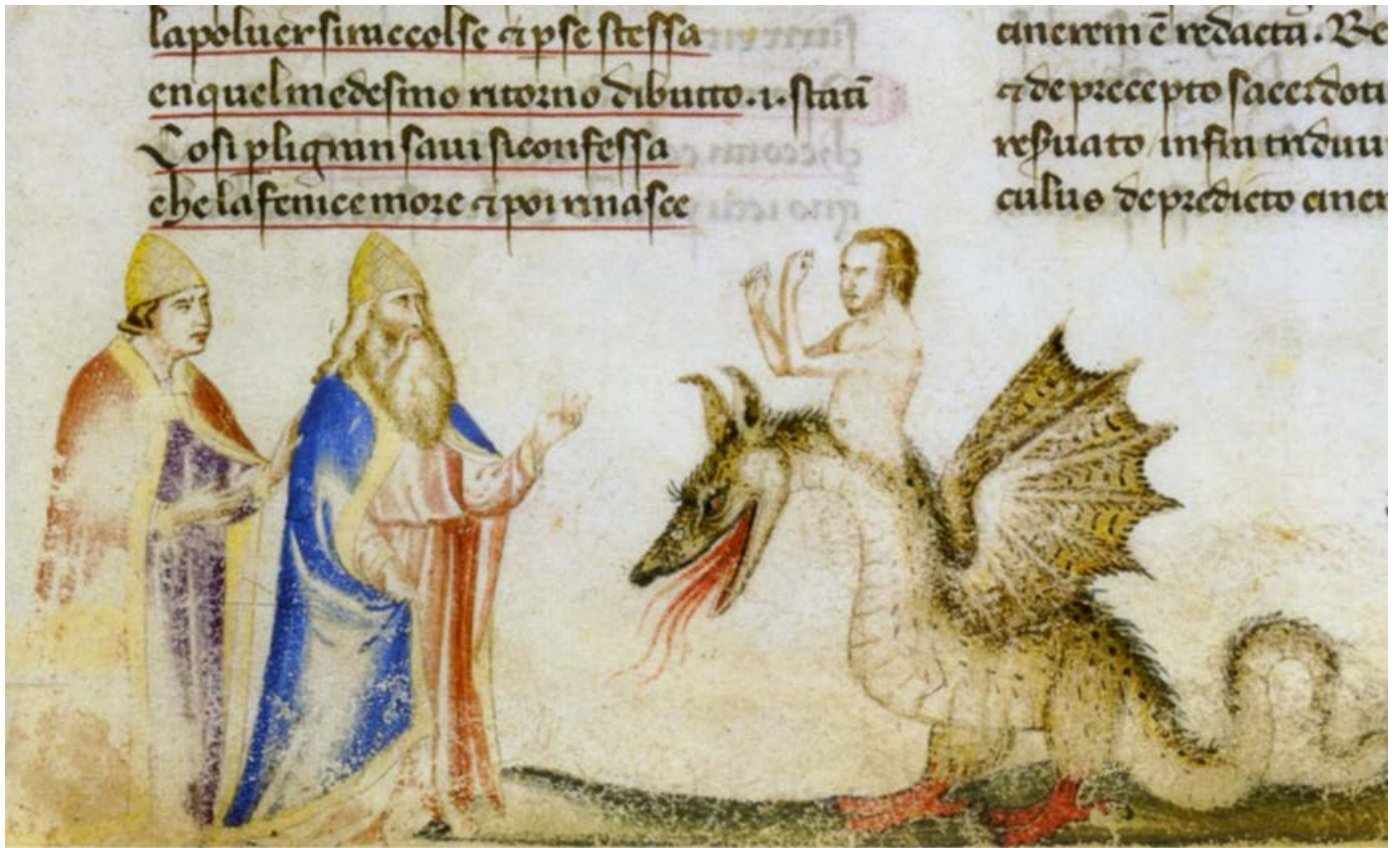 la polver si raccolse ⁊ p se stessa
en quel medesmo ritorno di butto .i. statĩ
Cosi p li gran savi si confessa
che la fenice more ⁊ poi rinasce
cinerem ẽ redactũ. Re
⁊ de precepto sacerdoti
culus de predicto ciner